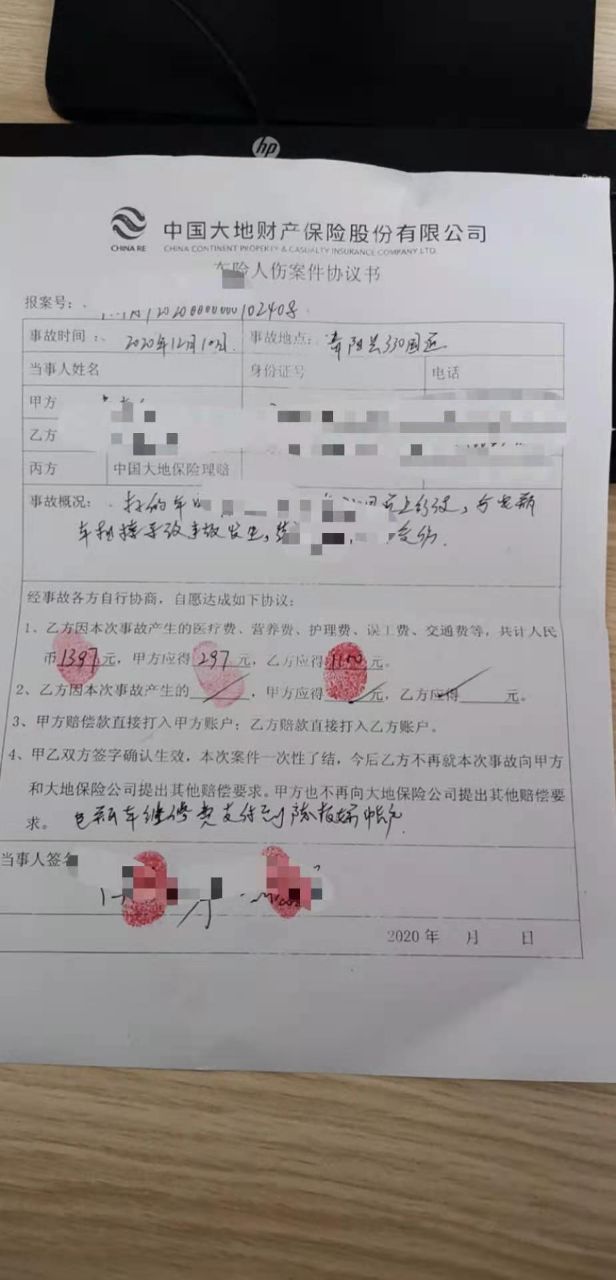 hp
中国大地财产保险股份有限公司
CHINA RE
CHINA CONTINENT PROPERTY & CASUALTY INSURANCE COMPANY LTD.
车险人伤案件协议书
报案号: 2020000000010240号
事故时间: 2020年12月10日 事故地点: 青阳县330国道
当事人姓名 身份证号 电话
甲方
乙方
丙方 中国大地保险理赔
事故概况: 上行驶,与电瓶
车相撞导致事故发生, 受伤.
经事故各方自行协商,自愿达成如下协议:
1、乙方因本次事故产生的医疗费、营养费、护理费、误工费、交通费等,共计人民
币1397元,甲方应得297元,乙方应得1100元。
2、乙方因本次事故产生的 ,甲方应得 元,乙方应得 元。
3、甲方赔偿款直接打入甲方账户;乙方赔款直接打入乙方账户。
4、甲乙双方签字确认生效,本次案件一次性了结,今后乙方不再就本次事故向甲方
和大地保险公司提出其他赔偿要求。甲方也不再向大地保险公司提出其他赔偿要
求。 电瓶车维修费支付到陈 帐户
当事人签名
2020年 月 日